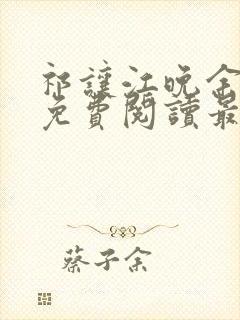 祁讓江晚余
免費閱讀最
蔡子余